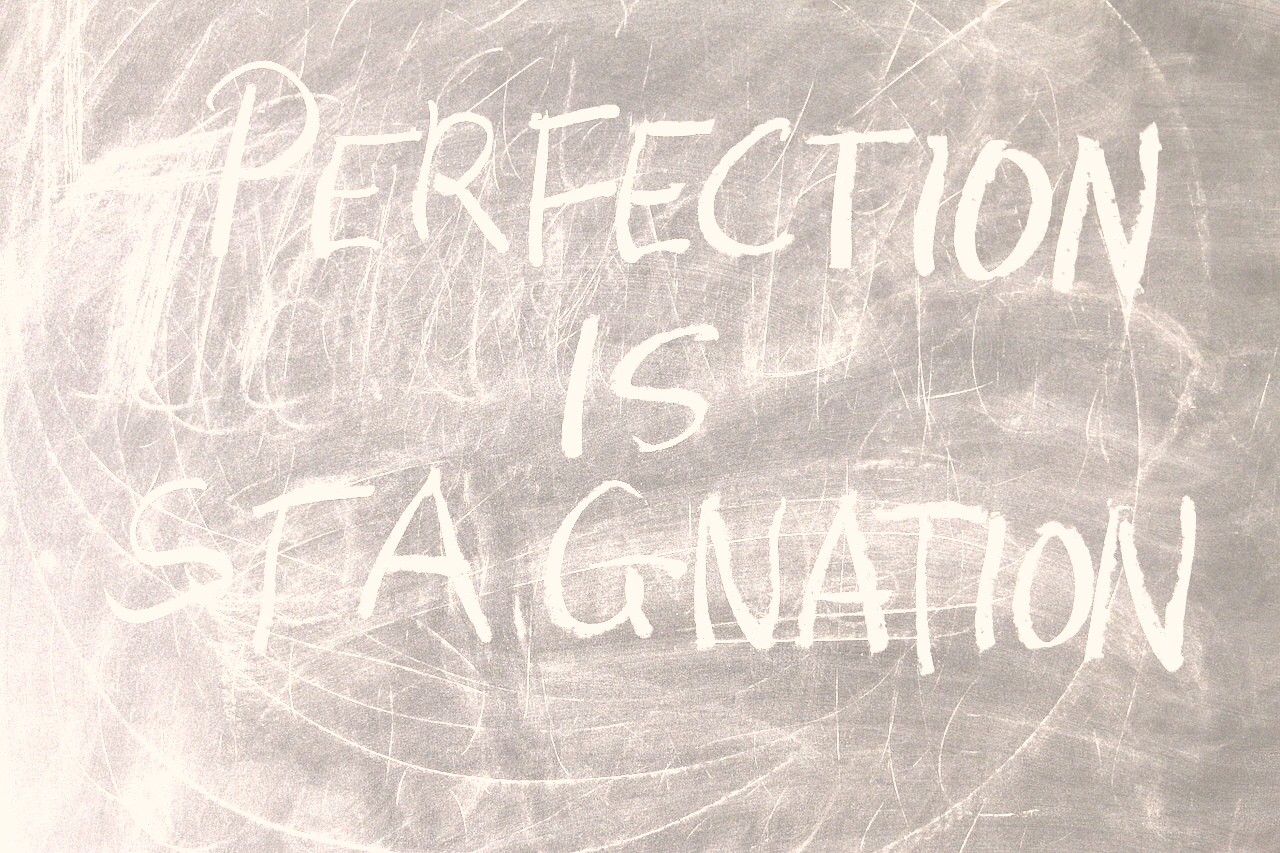 PERFECTION
IS
STAGNATION